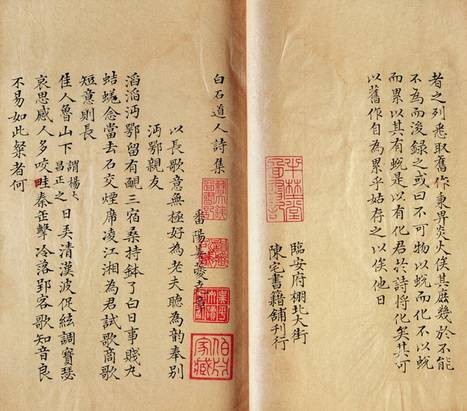 者之列悉取舊作秉畀炎火俟其庶幾於不能
不為而後錄之或曰不可物以蛻而化不以蛻
而累以其有蛻是以有化君於詩將化矣其可
以舊作自為累乎姑存之以俟他日
臨安府棚北大街
陳宅書籍鋪刊行
白石道人詩集
番陽姜夔堯章
以長歌意無極好為老夫聽為韵奉別
沔鄂親友
滔滔沔鄂留有靦三宿桑持鉢了白日事賤丸
蛣蜣念當去石交煙席凌江湘為君試歌商歌
短意則長
佳人魯山下謂楊大昌正之日弄清漢波促絃調寶瑟
哀思感人多咬哇秦缶擊冷落郢客歌知音良
不易如此粲者何